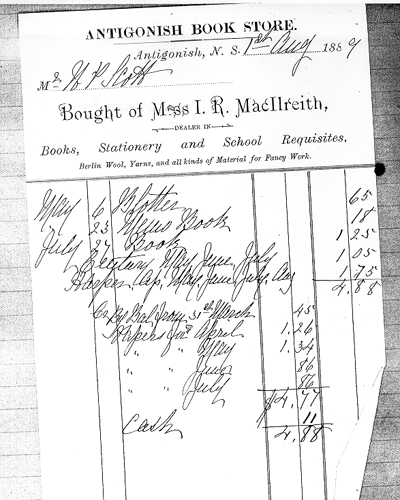 ANTIGONISH BOOK STORE.
Antigonish, N. S. 1st Aug 1889
Mr W P Scott
Bought of Miss I. R. MacIlreith,
DEALER IN
Books, Stationery and School Requisites.
Berlin Wool, Yarns, and all kinds of Material for Fancy Work.
May 6 Blotter 65
23 Mems Book 18
July 27 Book 1 25
Century May June July 1 05
Harper Ap, May, June, July, Aug 1.75
4.88
Cr By Bal from 31st March 45
" Papers for April 1.26
" " " May 1.34
" " " June 86
" " " July 86
$4.77
Cash 11
4.88